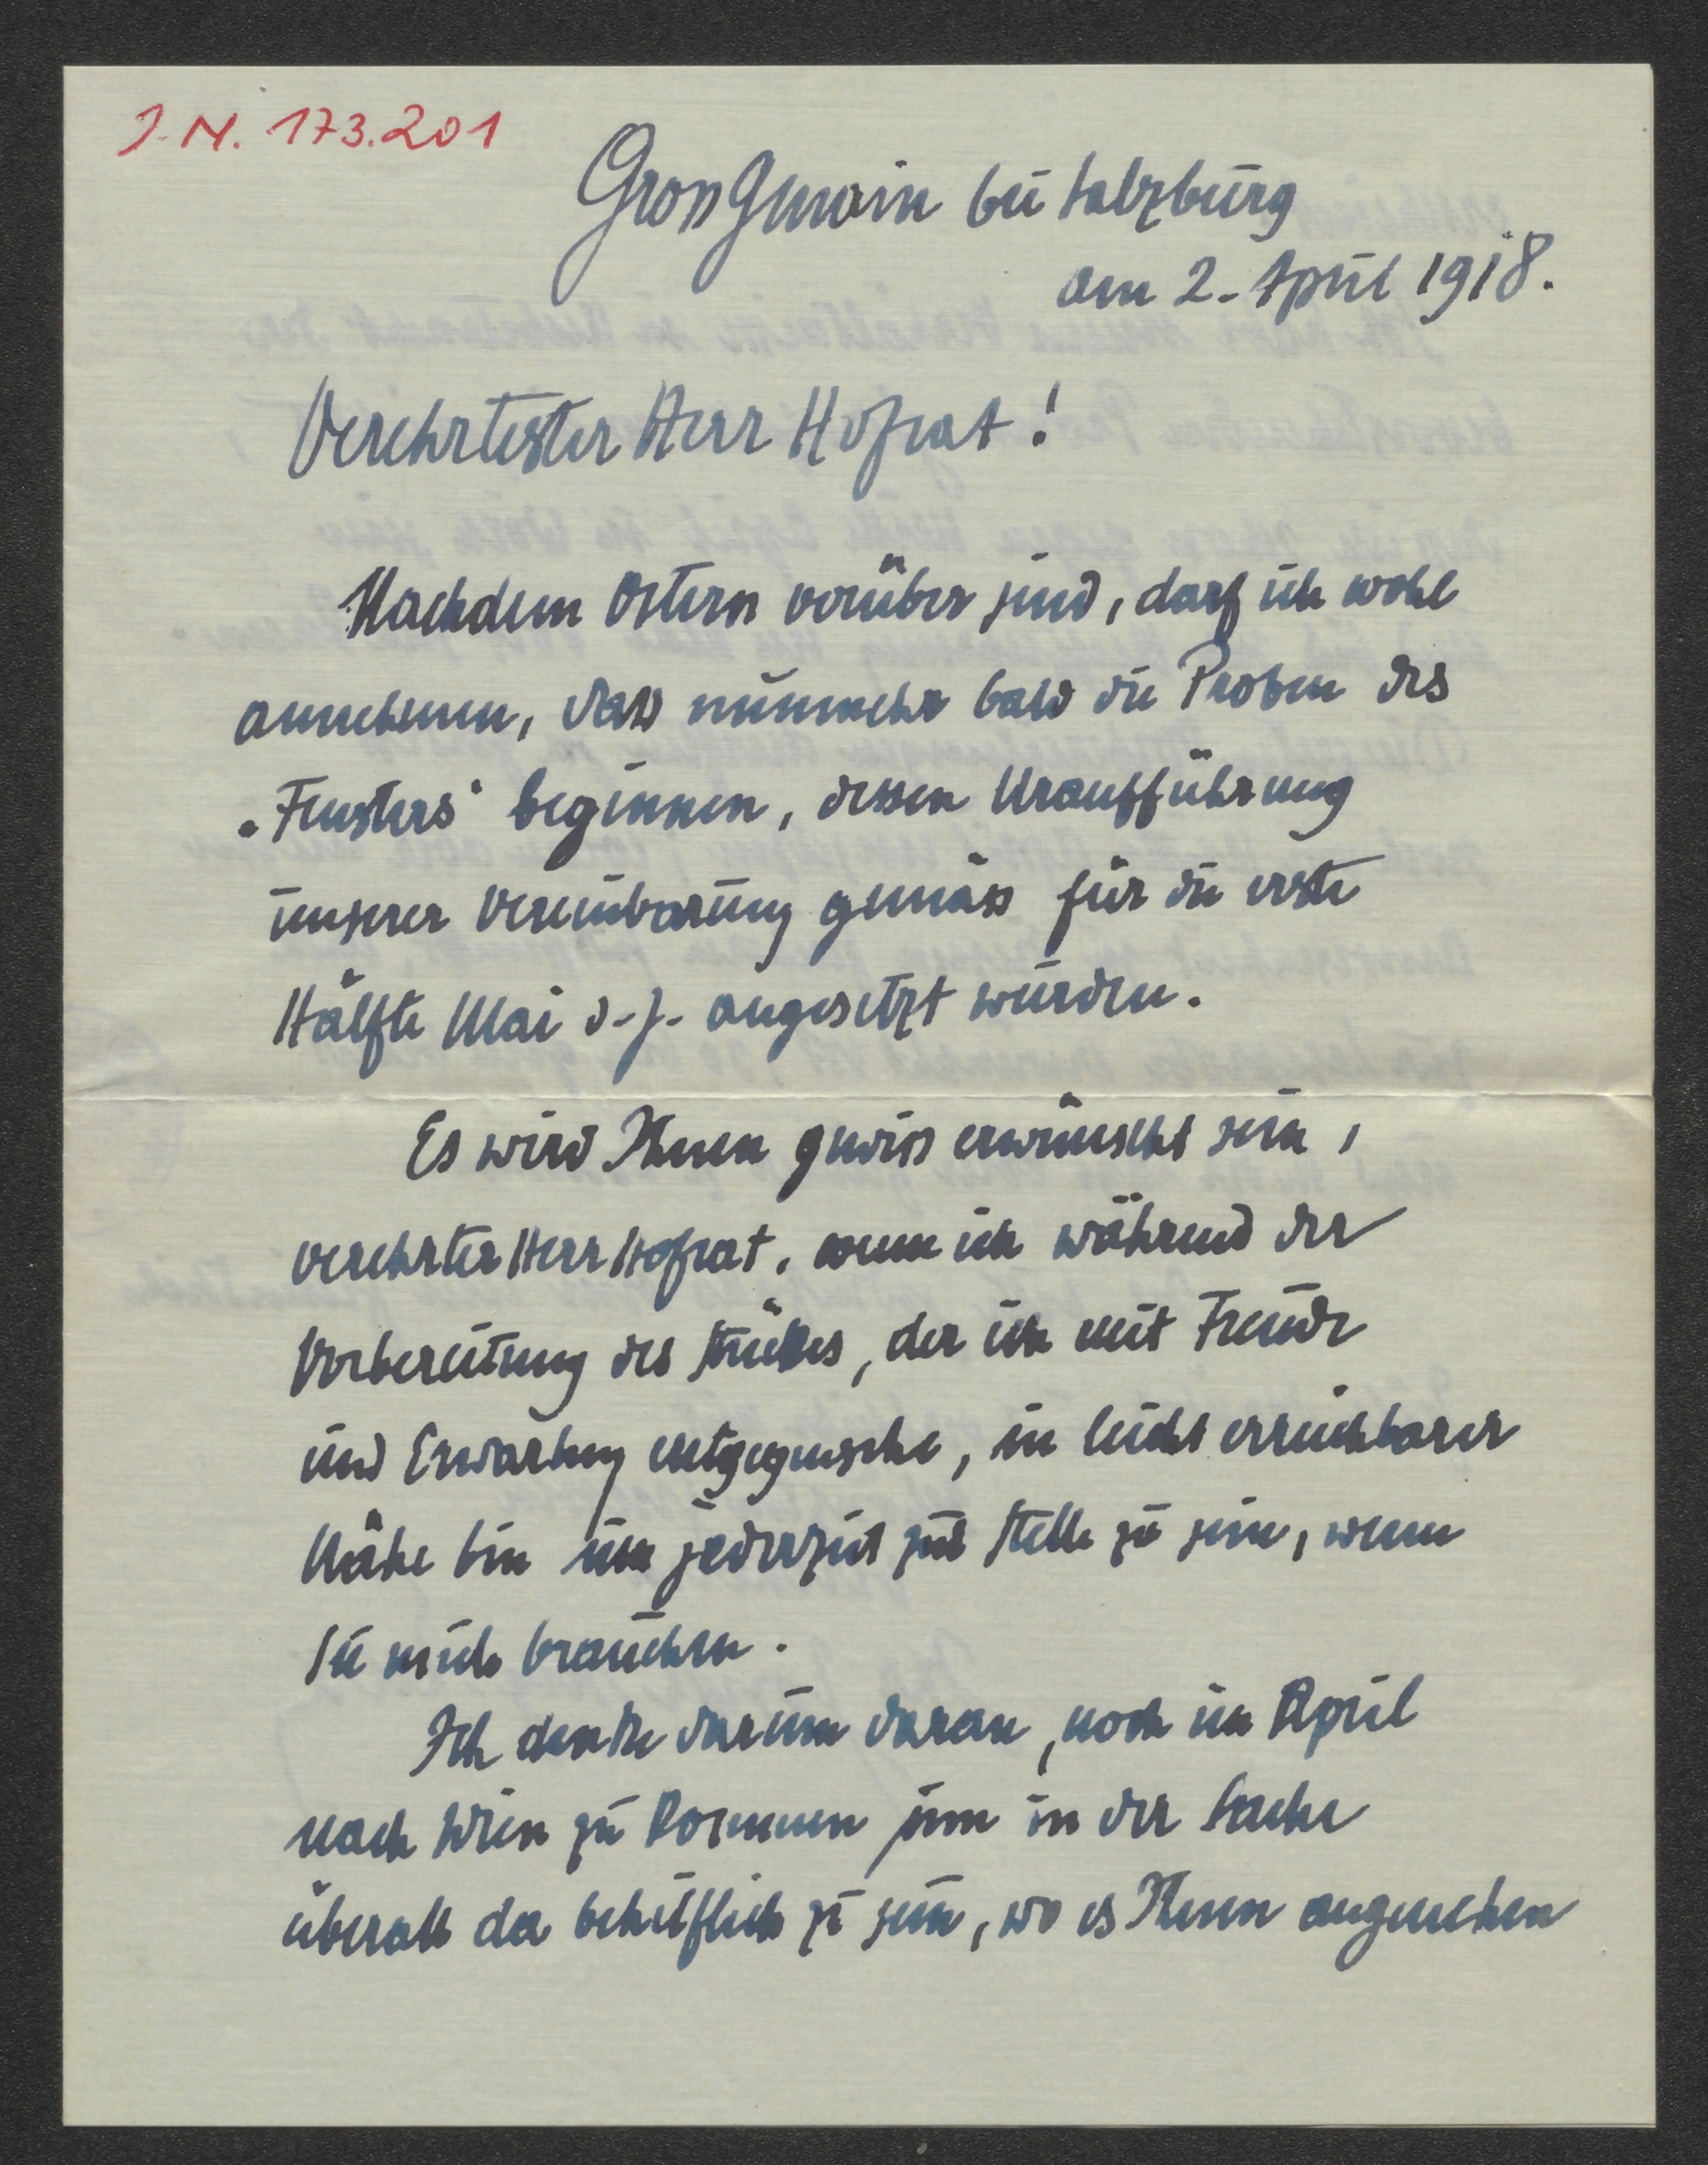 J.N. 173.201
Grossgmain bei Salzburg
am 2. April 1918.
Verehrtester Herr Hofrat!
Nachdem Ostern vorüber sind, darf ich wohl
annehmen, dass nunmehr bald die Proben des
„Fensters“ beginnen, dessen Uraufführung
unserer Vereinbarung gemäss für die erste
Hälfte Mai d. J. angesetzt wurden.
Es wird Ihnen gewiss erwünscht sein,
verehrter Herr Hofrat, wenn ich während der
Vorbereitung des Stückes, der ich mit Freude
und Erwartung entgegensehe, in leicht erreichbarer
Nähe bin um jederzeit zur Stelle zu sein, wenn
Sie mich brauchen.
Ich denke darum daran, noch im April
nach Wien zu kommen um in der Sache
überall da behilflich zu sein, wo es Ihnen angenehm